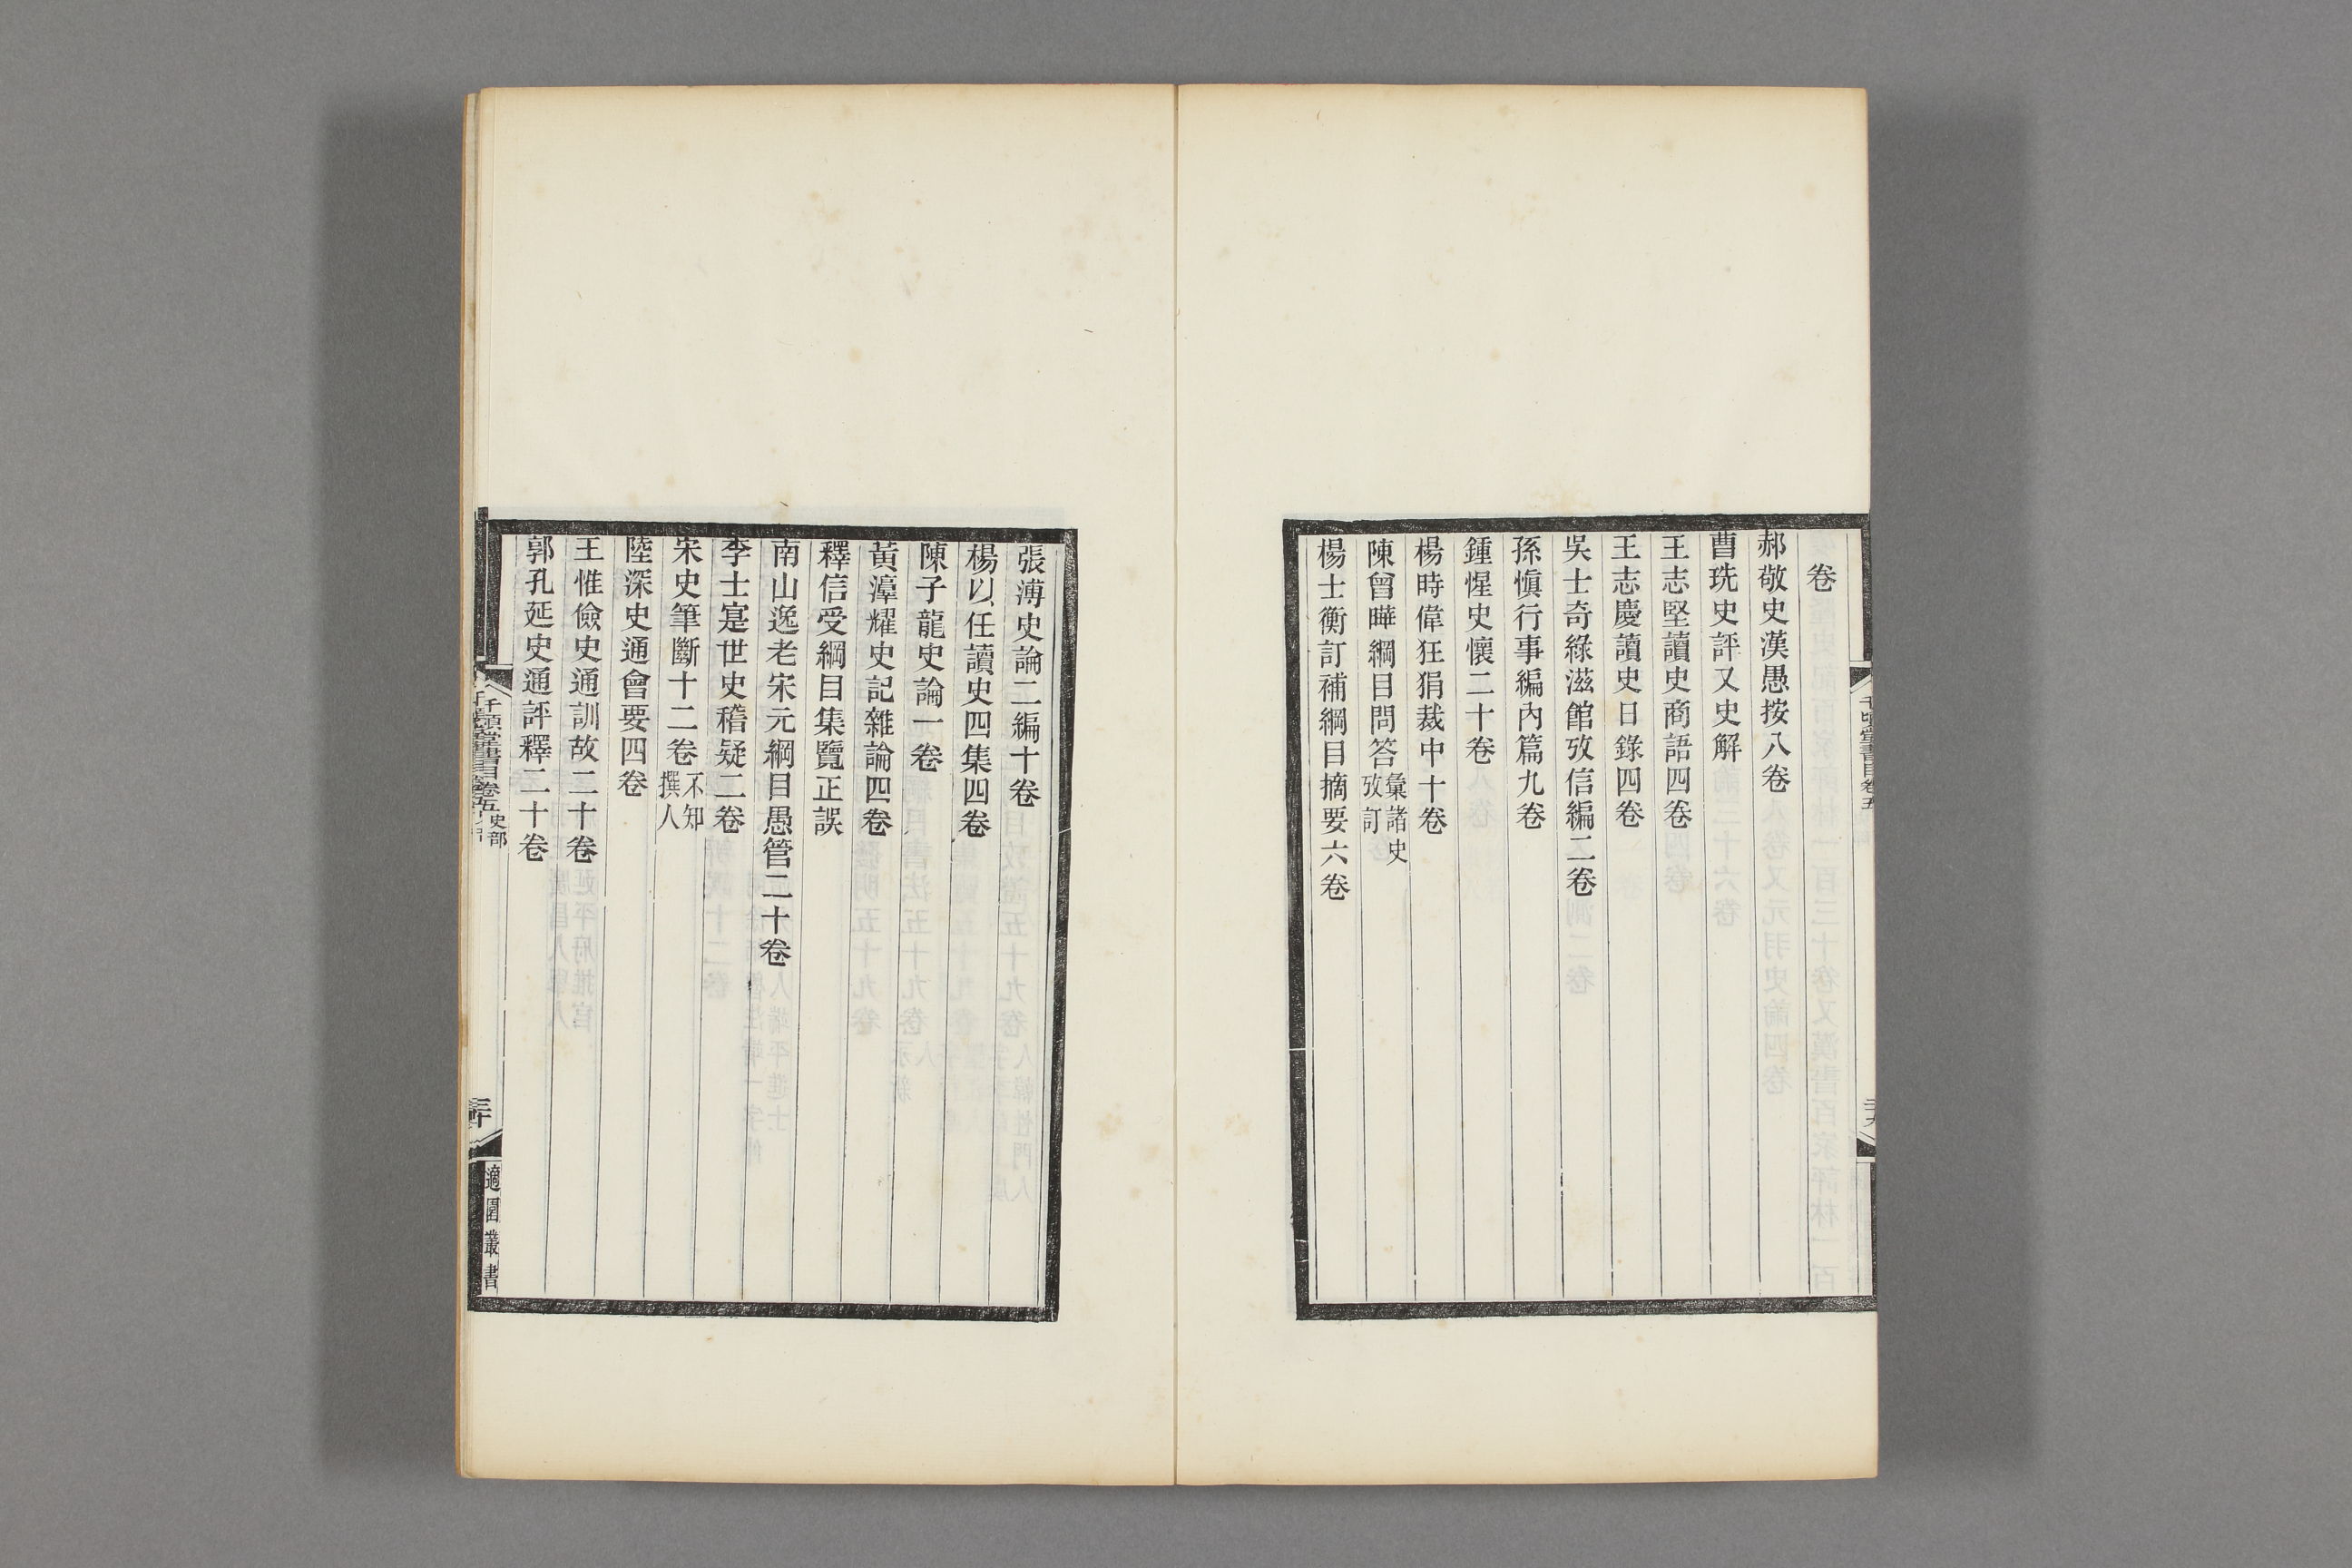 卷
郝敬史漢愚按八卷
曹珖史評又史解
王志堅讀史商語四卷
王志慶讀史日錄四卷
吳士奇綠滋館攷信編二卷
孫愼行事編內篇九卷
鍾惺史懷二十卷
楊時偉狂狷裁中十卷
陳曾曄綱目問答彙諸史攷訂
楊士衡訂補綱目摘要六卷
張溥史論二編十卷
楊以任讀史四集四卷
陳子龍史論一卷
黃澊耀史記雜論四卷
釋信受綱目集覽正誤
南山逸老宋元綱目愚管二十卷
李士寔世史稽疑二卷
宋史筆斷十二卷不知撰人
陸深史通會要四卷
王惟儉史通訓故二十卷
郭孔延史通評釋二十卷
千頃堂書目卷五史部
三十
適園叢書